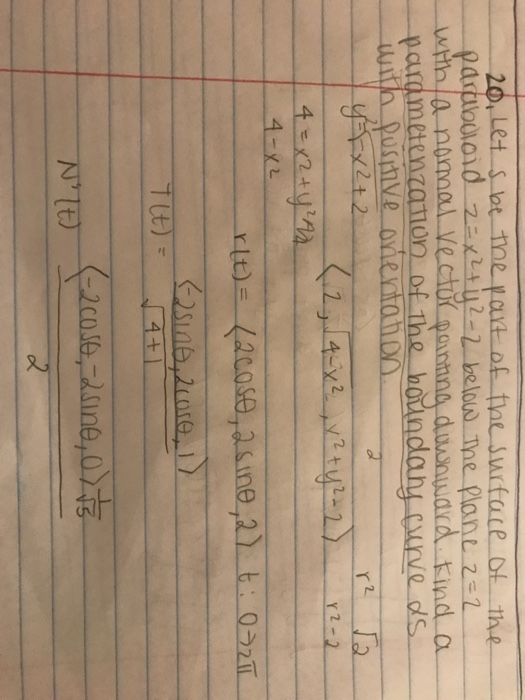 20. Let s be the part of the surface of the
paraboloid z=x²+y²-2 below the plane z=2
with a normal vector pointing downward. Find a
parameterization of the boundary curve ds
with positive orientation.
y=√-x²+2
r² √2
2
r²-2
⟨2, √4-x², x²+y²-2⟩
4=x²+y²
4-x²
r(t) = ⟨2cosθ, 2sinθ, 2⟩ t: 0→2π
T(t) = ⟨-2sinθ, 2cosθ, 1⟩
√4+1
N'(t) ⟨-2cosθ, -2sinθ, 0⟩ 1/√5
2